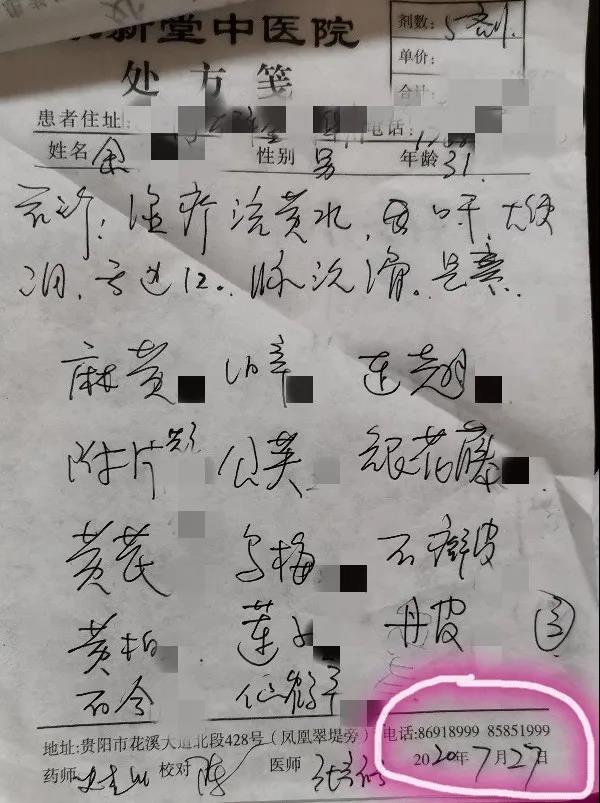 新堂中医院
处方笺
剂数: 5剂
单价:
合计:
患者住址: 电话:
姓名 余 性别 男 年龄 31
湿疹流黄水, 口干, 大便
脉沉滑。
麻黄 细辛 连翘
附片 公英 银花藤
黄芪 乌梅 石榴皮
黄柏 莲子 丹皮
石 仙鹤草
地址:贵阳市花溪大道北段428号(凤凰翠堤旁) 电话:86918999 85851999
药师 校对 陈 医师 2020年7月27日